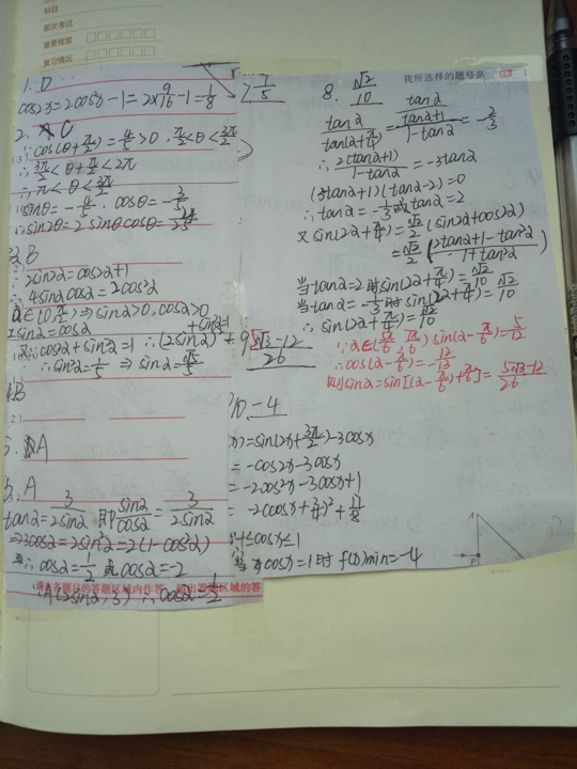 科目
那次考试
重要程度
复习情况
我所选择的题号是
1. D
cos2x=2cos²x-1=2×9/16-1=1/8
2. C
∵cos(θ+π/2)=4/5>0, π/2<θ<3π/2
∴3π/2<θ+π/2<2π
∴π<θ<3π/2
sinθ=-4/5, cosθ=-3/5
∴sin2θ=2sinθcosθ=24/25
B
∵2sin2α=cos2α+1
∴4sinαcosα=2cos²α
α∈(0,π/2)⇒sinα>0,cosα>0
2sinα=cosα
又∵cos²α+sin²α=1 ∴(2sinα)²+sin²α=1
∴sin²α=1/5 ⇒ sinα=√5/5
4. B
5. A
6. A
tanα=3/(2sinα) 即 sinα/cosα=3/(2sinα)
⇒3cosα=2sin²α=2(1-cos²α)
∴cosα=1/2 或 cosα=-2
A(2sinα,3) ∴cosα=1/2
请在各题目的答题区域内作答,超出答题区域的答
7. 7/5
8. √2/10
tanα/tan(α+π/4)=tanα/((tanα+1)/(1-tanα))=-2/3
∴2(tanα+1)/(1-tanα)=-3tanα
(3tanα+1)(tanα-2)=0
∴tanα=-1/3或tanα=2
又sin(2α+π/4)=√2/2(sin2α+cos2α)
=√2/2((2tanα+1-tan²α)/(1+tan²α))
当tanα=2时sin(2α+π/4)=√2/10
当tanα=-1/3时sin(2α+π/4)=√2/10
∴sin(2α+π/4)=√2/10
9. (5√3-12)/26
sin(α-π/6)=5/12
∴cos(α-π/6)=-12/13
则sinα=sin[(α-π/6)+π/6]=(5√3-12)/26
10. -4
=sin(2x+3π/2)-3cosx
=-cos2x-3cosx
=-2cos²x-3cosx+1
=-2(cosx+3/4)²+17/8
-1≤cosx≤1
当cosx=1时f(x)min=-4
A
P